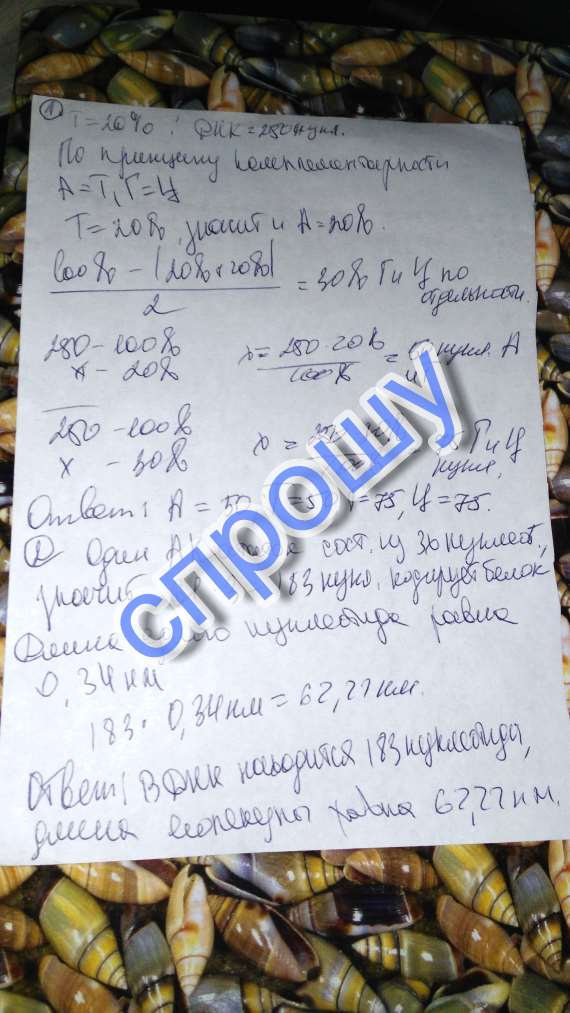 ① T=20%; ДНК=250нукл.
По принципу комплементарности
А=Т, Г=Ц
Т=20%, значит и А=20%.
100% – (20%+20%)
2
= 30% Г и Ц по
отдельности.
250 – 100%
х – 20%
х = 250·20%
100%
= нукл. А
и
250 – 100%
х – 30%
х =
Г и Ц
нукл,
Ответ: А = 50 =75, Ц =75.
② Один сост. из 3х нуклеот.,
значит 183 нукл. кодирует белок
Длина нуклеотида равна
0,34нм
183 · 0,34нм = 62,22нм.
Ответ: В ДНК находится 183 нуклеотида,
длина молекулы равна 62,22нм.
спрошу